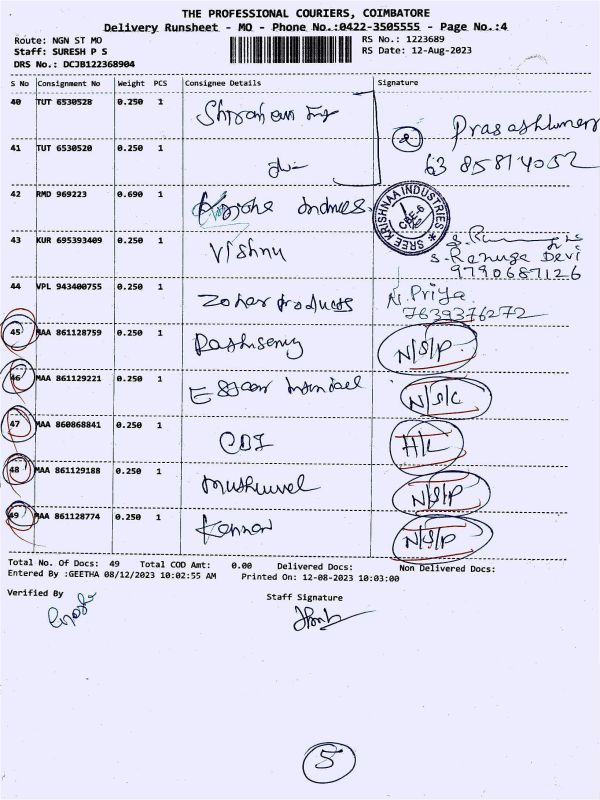 THE PROFESSIONAL COURIERS, COIMBATORE
Delivery Runsheet - MO - Phone No.:0422-3505555 - Page No.:4
Route: NGN ST MO
Staff: SURESH P S
DRS No.: DCJB122368904
RS No.: 1223689
RS Date: 12-Aug-2023
S No Consignment No Weight PCS Consignee Details Signature
40 TUT 6530528 0.250 1
41 TUT 6530520 0.250 1
63 85814052
42 RMD 969223 0.690 1
SREE KRISHNAA INDUSTRIES CBE-6
43 KUR 695393409 0.250 1 Vishnu
S. Renuga Devi
9790687126
44 VPL 943400755 0.250 1 Zoher Products N. Priya
7639376272
45 MAA 861128759 0.250 1 N/S/P
46 MAA 861129221 0.250 1 N/S/C
47 MAA 860868841 0.250 1 CDI H/L
48 MAA 861129188 0.250 1 N/S/P
49 MAA 861128774 0.250 1 Kannan N/S/P
Total No. Of Docs: 49 Total COD Amt: 0.00 Delivered Docs: Non Delivered Docs:
Entered By :GEETHA 08/12/2023 10:02:55 AM Printed On: 12-08-2023 10:03:00
Verified By Staff Signature
5